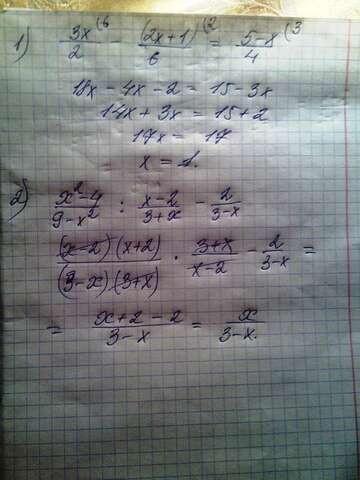 1) 3x/2 (6 - (2x+1)/6 (2 = 5-x/4 (3
18x - 4x - 2 = 15 - 3x
14x + 3x = 15 + 2
17x = 17
x = 1.
2) x²-4/9-x² : x-2/3+x - 2/3-x
(x-2)(x+2)/(3-x)(3+x) · 3+x/x-2 - 2/3-x =
= x+2-2/3-x = x/3-x.